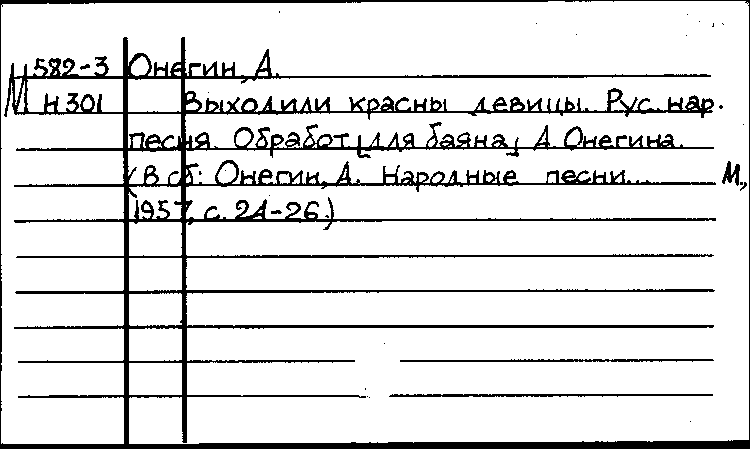 М 582-3 Онегин, А.
Н 301 Выходили красны девицы. Рус. нар.
песня. Обработ. [для баяна] А. Онегина.
(В сб: Онегин, А. Народные песни... М.,
1957, с. 24-26.)